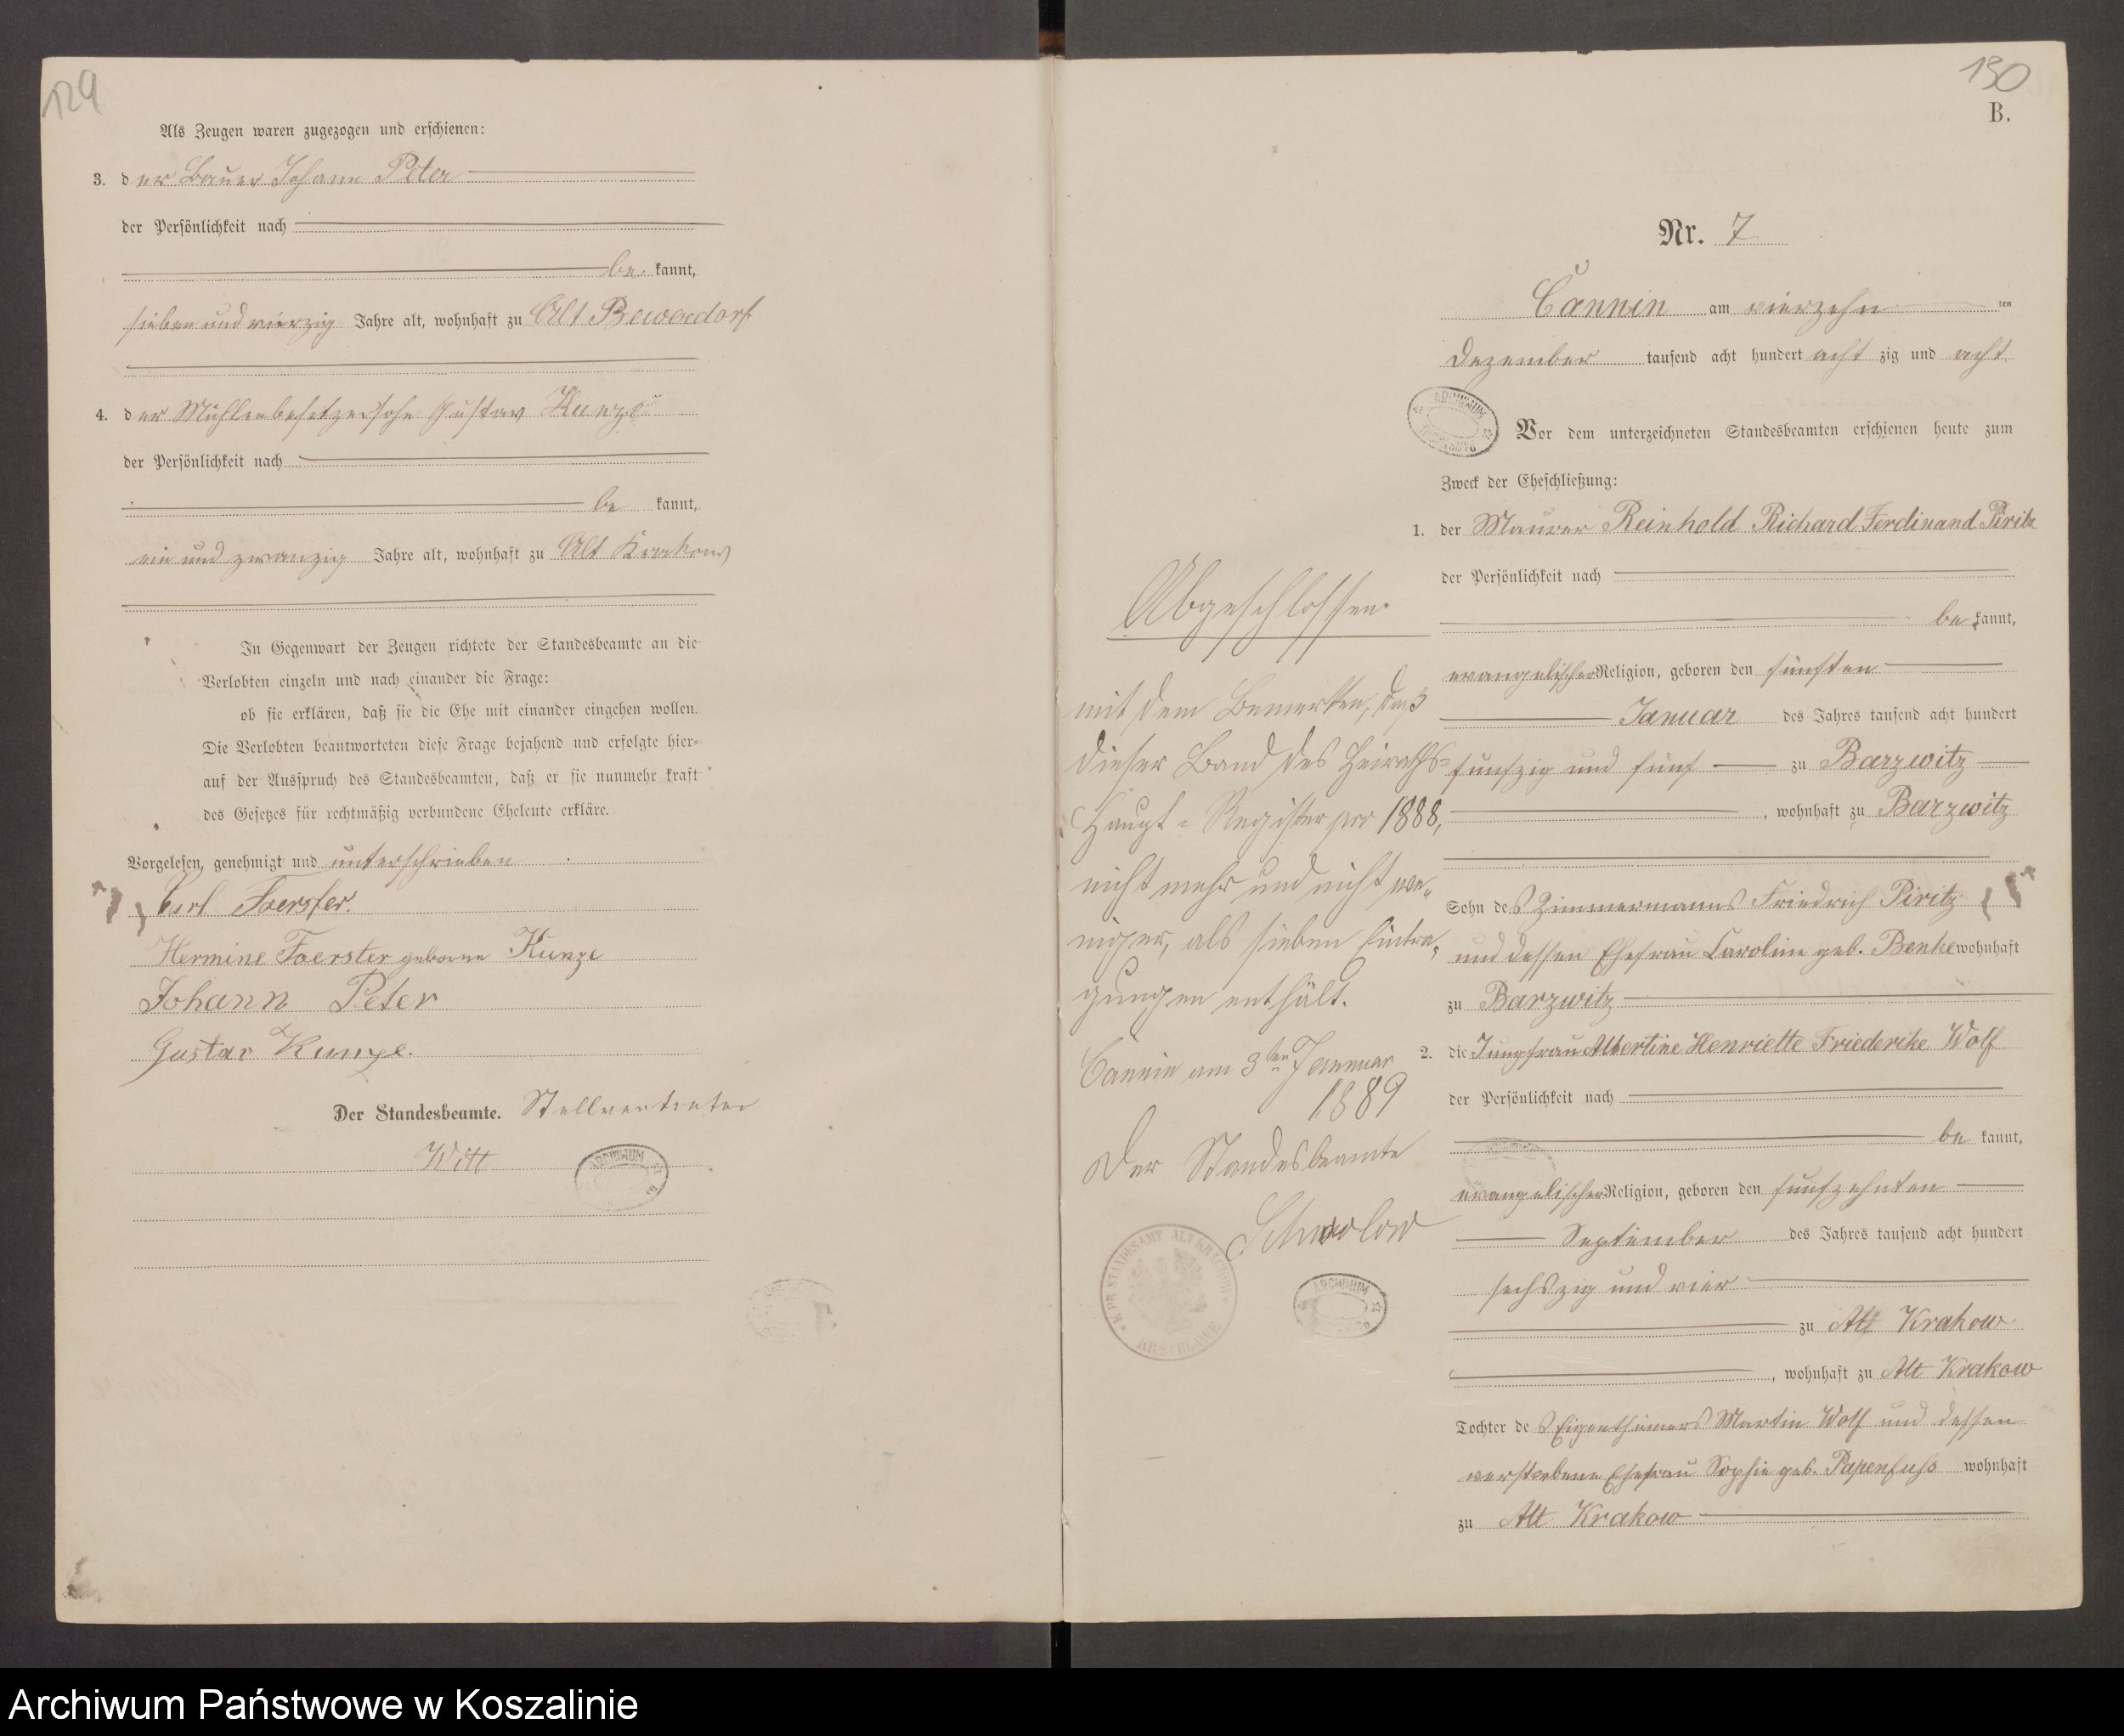 129
Als Zeugen waren zugezogen und erschienen:
3. der Bauer Johann Peter
der Persönlichkeit nach
be kannt,
sieben und vierzig Jahre alt, wohnhaft zu Alt Bewersdorf
4. der Mühlenbesitzersohn Gustav Kunze
der Persönlichkeit nach
be kannt,
ein und zwanzig Jahre alt, wohnhaft zu Alt Krakow
In Gegenwart der Zeugen richtete der Standesbeamte an die
Verlobten einzeln und nach einander die Frage:
ob sie erklären, daß sie die Ehe mit einander eingehen wollen.
Die Verlobten beantworteten diese Frage bejahend und erfolgte hier-
auf der Ausspruch des Standesbeamten, daß er sie nunmehr kraft
des Gesetzes für rechtmäßig verbundene Eheleute erkläre.
Vorgelesen, genehmigt und unterschrieben
Carl Foerster.
Hermine Foerster geborne Kunze
Johann Peter
Gustav Kunze.
Der Standesbeamte. Stellvertreter
Witt
ARCHIWUM
130
B.
Nr. 7
Cannin am vierzehn ten
Dezember tausend acht hundert acht zig und acht
ARCHIWUM
Vor dem unterzeichneten Standesbeamten erschienen heute zum
Zweck der Eheschließung:
1. der Maurer Reinhold Richard Ferdinand Piritz
der Persönlichkeit nach
be kannt,
evangelischer Religion, geboren den fünften
Januar des Jahres tausend acht hundert
funfzig und fünf zu Barzwitz
, wohnhaft zu Barzwitz
Sohn des Zimmermanns Friedrich Piritz
und dessen Ehefrau Caroline geb. Benke wohnhaft
zu Barzwitz
2. die Jungfrau Albertine Henriette Friederike Wolf
der Persönlichkeit nach
be kannt,
evangelischer Religion, geboren den funfzehnten
September des Jahres tausend acht hundert
sechszig und vier
zu Alt Krakow
, wohnhaft zu Alt Krakow
Tochter des Eigenthümers Martin Wolf und dessen
verstorbene Ehefrau Sophie geb. Papenfuhs wohnhaft
zu Alt Krakow
Abgeschlossen
mit dem Bemerken, daß
dieser Band des Heiraths-
Haupt-Register pro 1888,
nicht mehr und nicht we-
niger, als sieben Eintra-
gungen enthält.
Cannin am 3ten Januar
1889
Der Standesbeamte
Schwolow
K. PR. STANDESAMT ALT KRAKOW
KR. SCHLAWE
ARCHIWUM
Archiwum Państwowe w Koszalinie